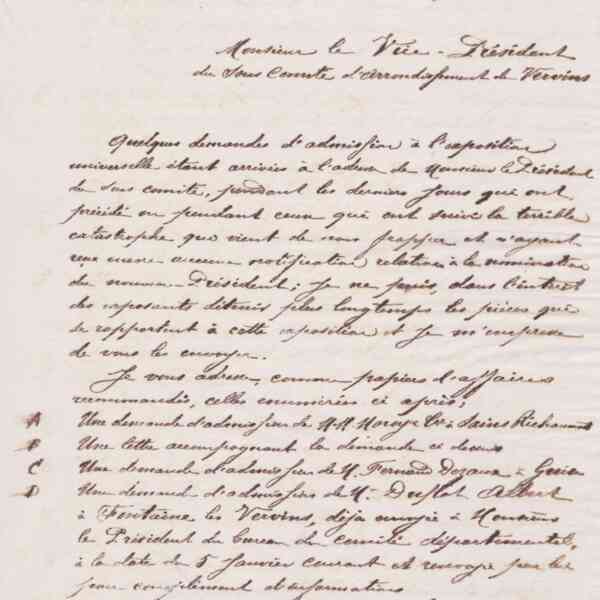 Monsieur le Vice-Président
du Sous Comité d'arrondissement de Vervins
Quelques demandes d'admission à l'exposition
universelle étant arrivées à l'adresse de Monsieur le Président
du sous comité, pendant les derniers jours qui ont
précédé ou pendant ceux qui ont suivi la terrible
catastrophe qui vient de nous frapper et n'ayant
reçu encore aucune notification relative à la nomination
du nouveau Président; Je ne puis, dans l'intérêt
des exposants détenir plus longtemps les pièces qui
se rapportent à cette exposition et Je m'empresse
de vous les envoyer.
Je vous adresse, comme papiers d'affaires
recommandés, celles énumérées ci après;
A Une demande d'admission de M.M. & Cie à Sains Richaumont
B Une lettre accompagnant la demande ci dessus
C Une demande d'admission de M. Fernand Dezaux à Guise
D Une demande d'admission de M. Duflot Albert
à Fontaine les Vervins, déjà envoyée à Monsieur
le Président du bureau du comité départemental,
à la date du 5 Janvier courant et renvoyée par lui
pour complément d'informations